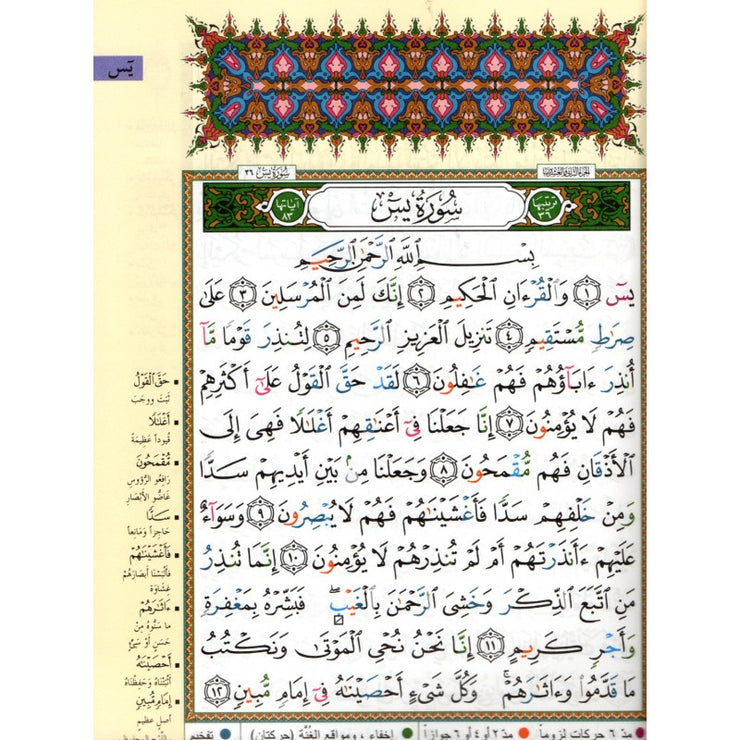 يسٓ
الجزء الثاني والعشرون
سُورَةُ يسٓ ٣٦
ترتيبها ٣٦
سُورَةُ يسٓ
آياتها ٨٣
بِسْمِ ٱللَّهِ ٱلرَّحْمَٰنِ ٱلرَّحِيمِ
يسٓ ١ وَٱلْقُرْءَانِ ٱلْحَكِيمِ ٢ إِنَّكَ لَمِنَ ٱلْمُرْسَلِينَ ٣ عَلَىٰ
صِرَٰطٍ مُّسْتَقِيمٍ ٤ تَنزِيلَ ٱلْعَزِيزِ ٱلرَّحِيمِ ٥ لِتُنذِرَ قَوْمًا مَّآ
أُنذِرَ ءَابَآؤُهُمْ فَهُمْ غَٰفِلُونَ ٦ لَقَدْ حَقَّ ٱلْقَوْلُ عَلَىٰٓ أَكْثَرِهِمْ
فَهُمْ لَا يُؤْمِنُونَ ٧ إِنَّا جَعَلْنَا فِىٓ أَعْنَٰقِهِمْ أَغْلَٰلًا فَهِىَ إِلَى
ٱلْأَذْقَانِ فَهُم مُّقْمَحُونَ ٨ وَجَعَلْنَا مِنۢ بَيْنِ أَيْدِيهِمْ سَدًّا
وَمِنْ خَلْفِهِمْ سَدًّا فَأَغْشَيْنَٰهُمْ فَهُمْ لَا يُبْصِرُونَ ٩ وَسَوَآءٌ
عَلَيْهِمْ ءَأَنذَرْتَهُمْ أَمْ لَمْ تُنذِرْهُمْ لَا يُؤْمِنُونَ ١٠ إِنَّمَا تُنذِرُ
مَنِ ٱتَّبَعَ ٱلذِّكْرَ وَخَشِىَ ٱلرَّحْمَٰنَ بِٱلْغَيْبِ ۖ فَبَشِّرْهُ بِمَغْفِرَةٍ
وَأَجْرٍ كَرِيمٍ ١١ إِنَّا نَحْنُ نُحْىِ ٱلْمَوْتَىٰ وَنَكْتُبُ
مَا قَدَّمُوا۟ وَءَاثَٰرَهُمْ ۚ وَكُلَّ شَىْءٍ أَحْصَيْنَٰهُ فِىٓ إِمَامٍ مُّبِينٍ ١٢
▪ حَقَّ ٱلْقَوْلُ
ثَبَتَ وَوَجَبَ
▪ أَغْلَٰلًا
قُيُوداً عَظِيمَةً
▪ مُّقْمَحُونَ
رَافِعُو الرُّؤُوسِ
غَاضُّو الأَبْصَارِ
▪ سَدًّا
حَاجِزاً وَمَانِعاً
▪ فَأَغْشَيْنَٰهُمْ
فَأَلْبَسْنَا أَبْصَارَهُمْ
غِشَاوَةً
▪ ءَاثَٰرَهُمْ
مَا سَنُّوهُ مِنْ
حَسَنٍ أَوْ سَيِّئٍ
▪ أَحْصَيْنَٰهُ
أَثْبَتْنَاهُ وَحَفِظْنَاهُ
▪ إِمَامٍ مُّبِينٍ
أَصْلٍ عَظِيمٍ
مدّ ٦ حركات لزوماً ● مدّ ٢ أو ٤ أو ٦ جوازاً ● إخفاء، ومواقع الغُنَّة (حركتان) ● تفخيم